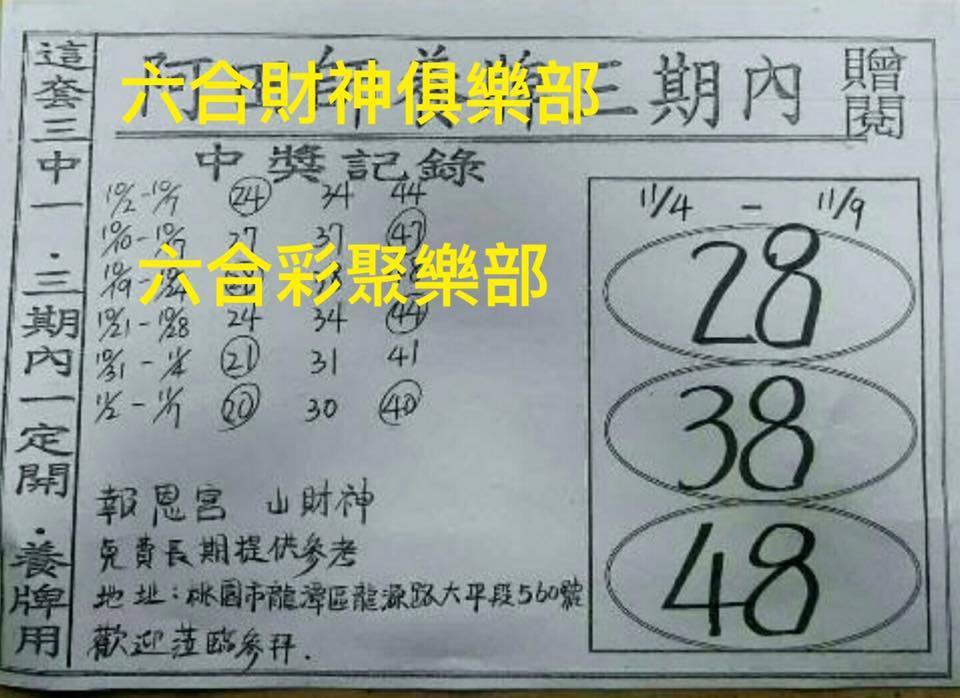 這套三中一.三期內一定開.養牌用
六合財神俱樂部
三期內
贈閱
中獎記錄
10/2-10/7 24 34 44
10/10-10/17 27 37 47
六合彩聚樂部
10/21-10/28 24 34 44
10/31-11/4 21 31 41
11/2-11/7 20 30 40
報恩宮 山財神
免費長期提供參考
地址:桃園市龍潭區龍源路大平段560號
歡迎蒞臨參拜.
11/4-11/9
28
38
48